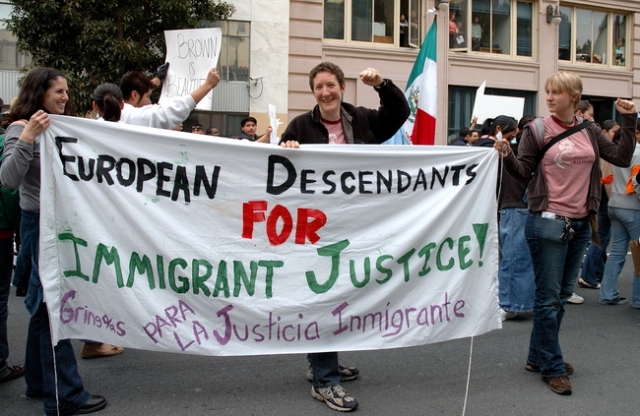 BROWN
IS
BEAUTIFUL
EUROPEAN DESCENDANTS
FOR
IMMIGRANT JUSTICE!
Gring@s PARA LA Justicia Inmigrante